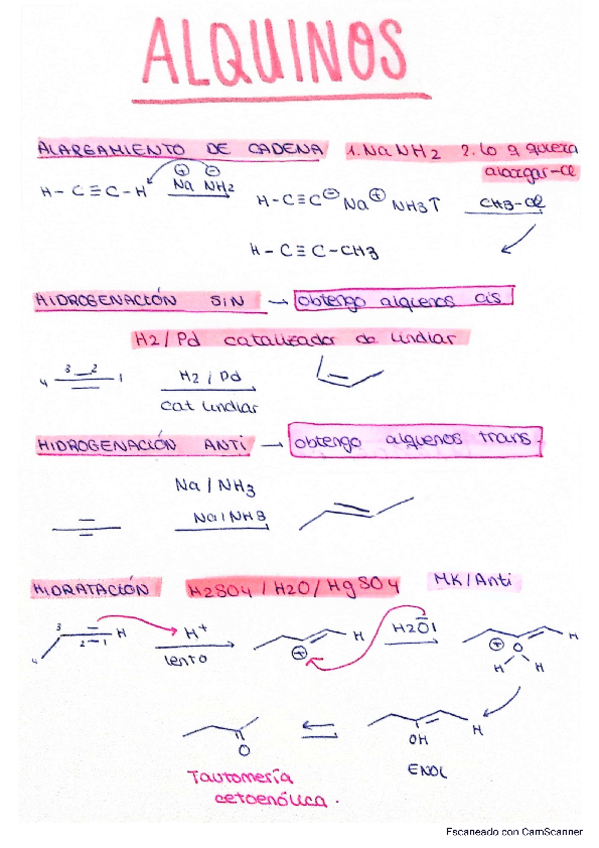 ALQUINOS
ALARGAMIENTO DE CADENA 1. NaNH2 2. lo q quiera
alargar-Cl
H-C≡C-H Na⊕ NH2⊖ H-C≡C⊖ Na⊕ NH3↑ CH3-Cl
H-C≡C-CH3
HIDROGENACIÓN SIN → obtengo alquenos cis
H2/Pd catalizador de lindlar
4 3 2 1 H2/Pd
cat lindlar
HIDROGENACIÓN ANTI → obtengo alquenos trans.
Na/NH3
Na/NH3
HIDRATACIÓN H2SO4/H2O/HgSO4 MK/Anti
4 3 2 1 H H+ lento ⊕ H H2O ⊕ O H H H
O OH H
Tautomería ENOL
cetoenólica.
Escaneado con CamScanner